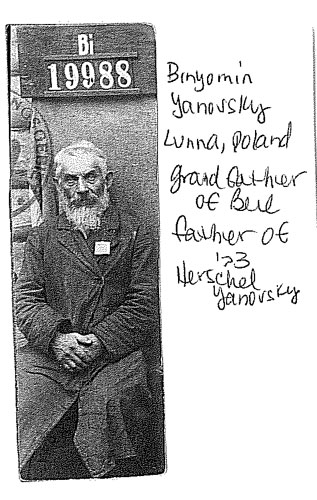 Bi
19988
Binyomin
Yanovsky
Lunna, Poland
grandfather
of Berl
father of
Herschel
Yanovsky